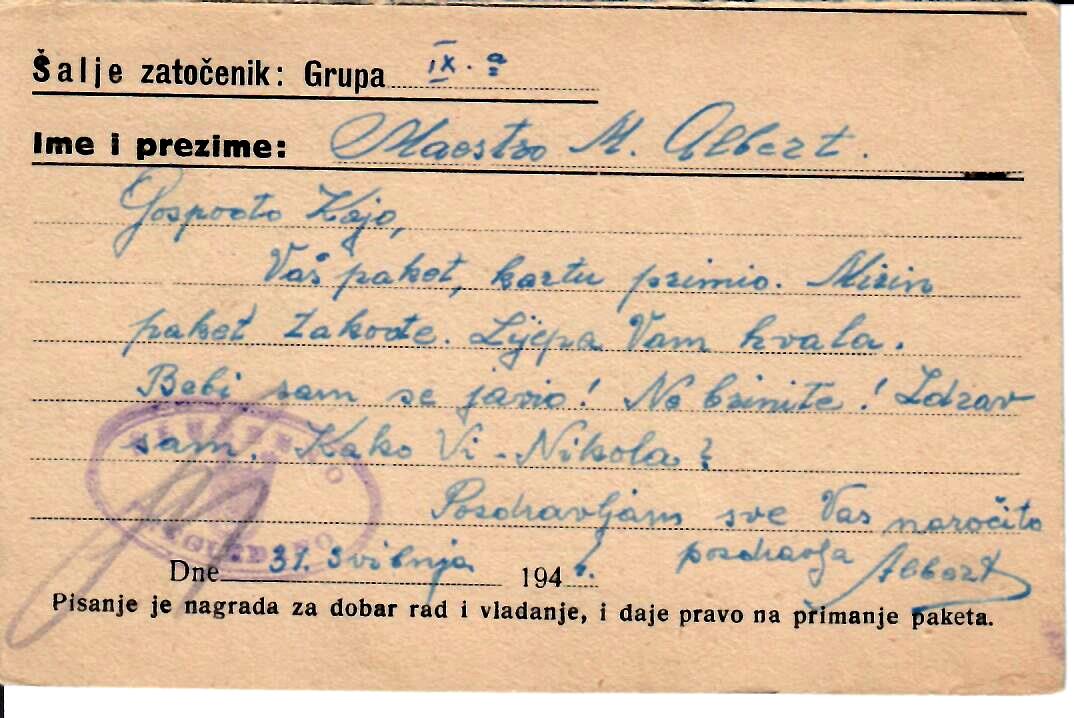 Šalje zatočenik: Grupa IX. a
Ime i prezime: Maestro M. Albert.
Gospođo Kajo,
Vaš paket, kartu primio. Mirin
paket takođe. Lijepa Vam hvala.
Bebi sam se javio! Ne brinite! Zdrav
sam. Kako Vi - Nikola?
Pozdravljam sve Vas naročito
pozdravlja Albert
Dne 31. svibnja 194
Pisanje je nagrada za dobar rad i vladanje, i daje pravo na primanje paketa.